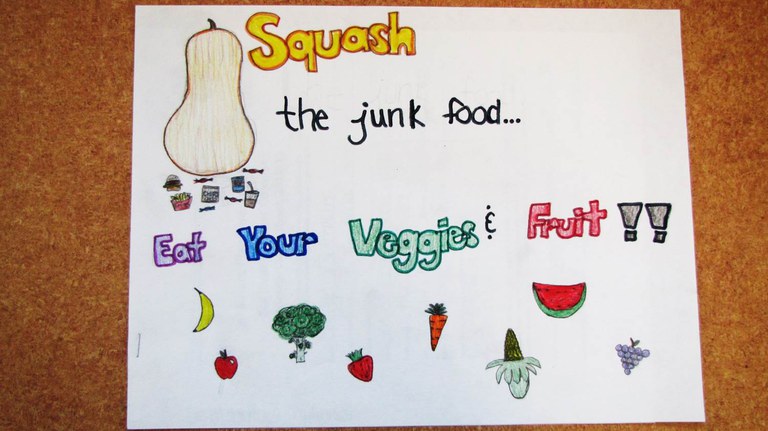 Squash
the junk food...
Eat Your Veggies & Fruit!!